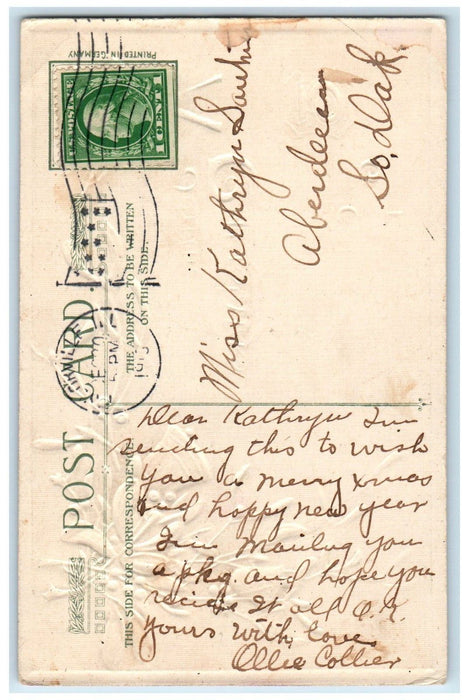 PRINTED IN GERMANY
U.S. POSTAGE
1 CENT 1
POST CARD
THE ADDRESS TO BE WRITTEN
ON THIS SIDE.
THIS SIDE FOR CORRESPONDENCE
5 PM
Miss Kathryn
Aberdeen
So. Dak
Dear Kathryn Im
sending this to wish
you a merry xmas
and happy new year
Im Mailing you
a pkg. and hope you
recive It all O.K.
Yours with love
Ollie Collier